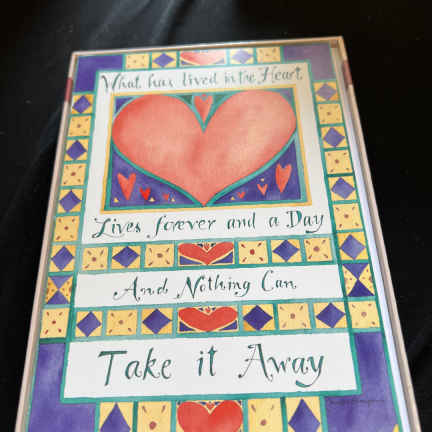 What has lived in the Heart
Lives forever and a Day
And Nothing Can
Take it Away